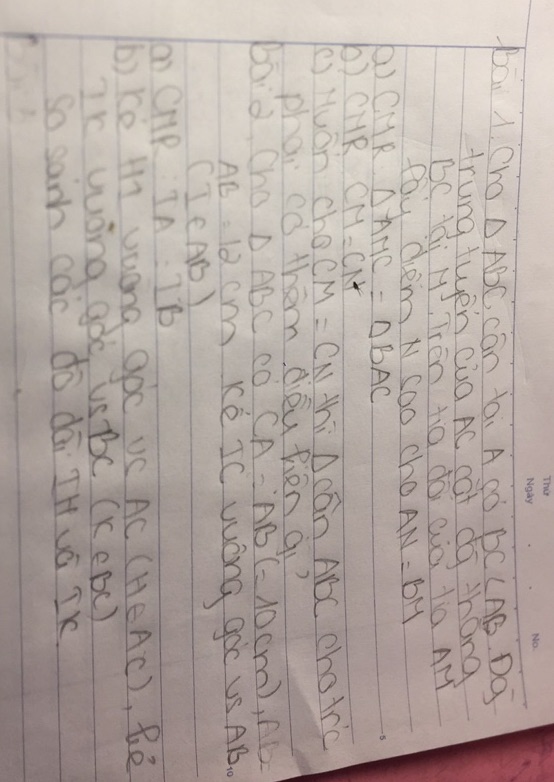 Thứ
Ngày
No.
Bài 1. Cho Δ ABC cân tại A có BC < AB. Đg
trung tuyến của AC cắt đg thẳng
BC tại M. Trên tia đối của tia AM
lấy điểm N sao cho AN = BM
a) CMR Δ AMC = Δ BAC
b) CMR CM = CN
c) Muốn cho CM = CN thì Δ cân ABC cho trc
phải có thêm điều kiện gì
Bài 2. Cho Δ ABC có CA = AB (= 10 cm), AB
AB = 12 cm Kẻ IC vuông góc vs AB
(I ∈ AB)
a) CMR : IA = IB
b) Kẻ HI vuông góc vs AC (H ∈ AC), kẻ
IK vuông góc vs BC (K ∈ BC)
So sánh các độ dài IH và IK
5
10